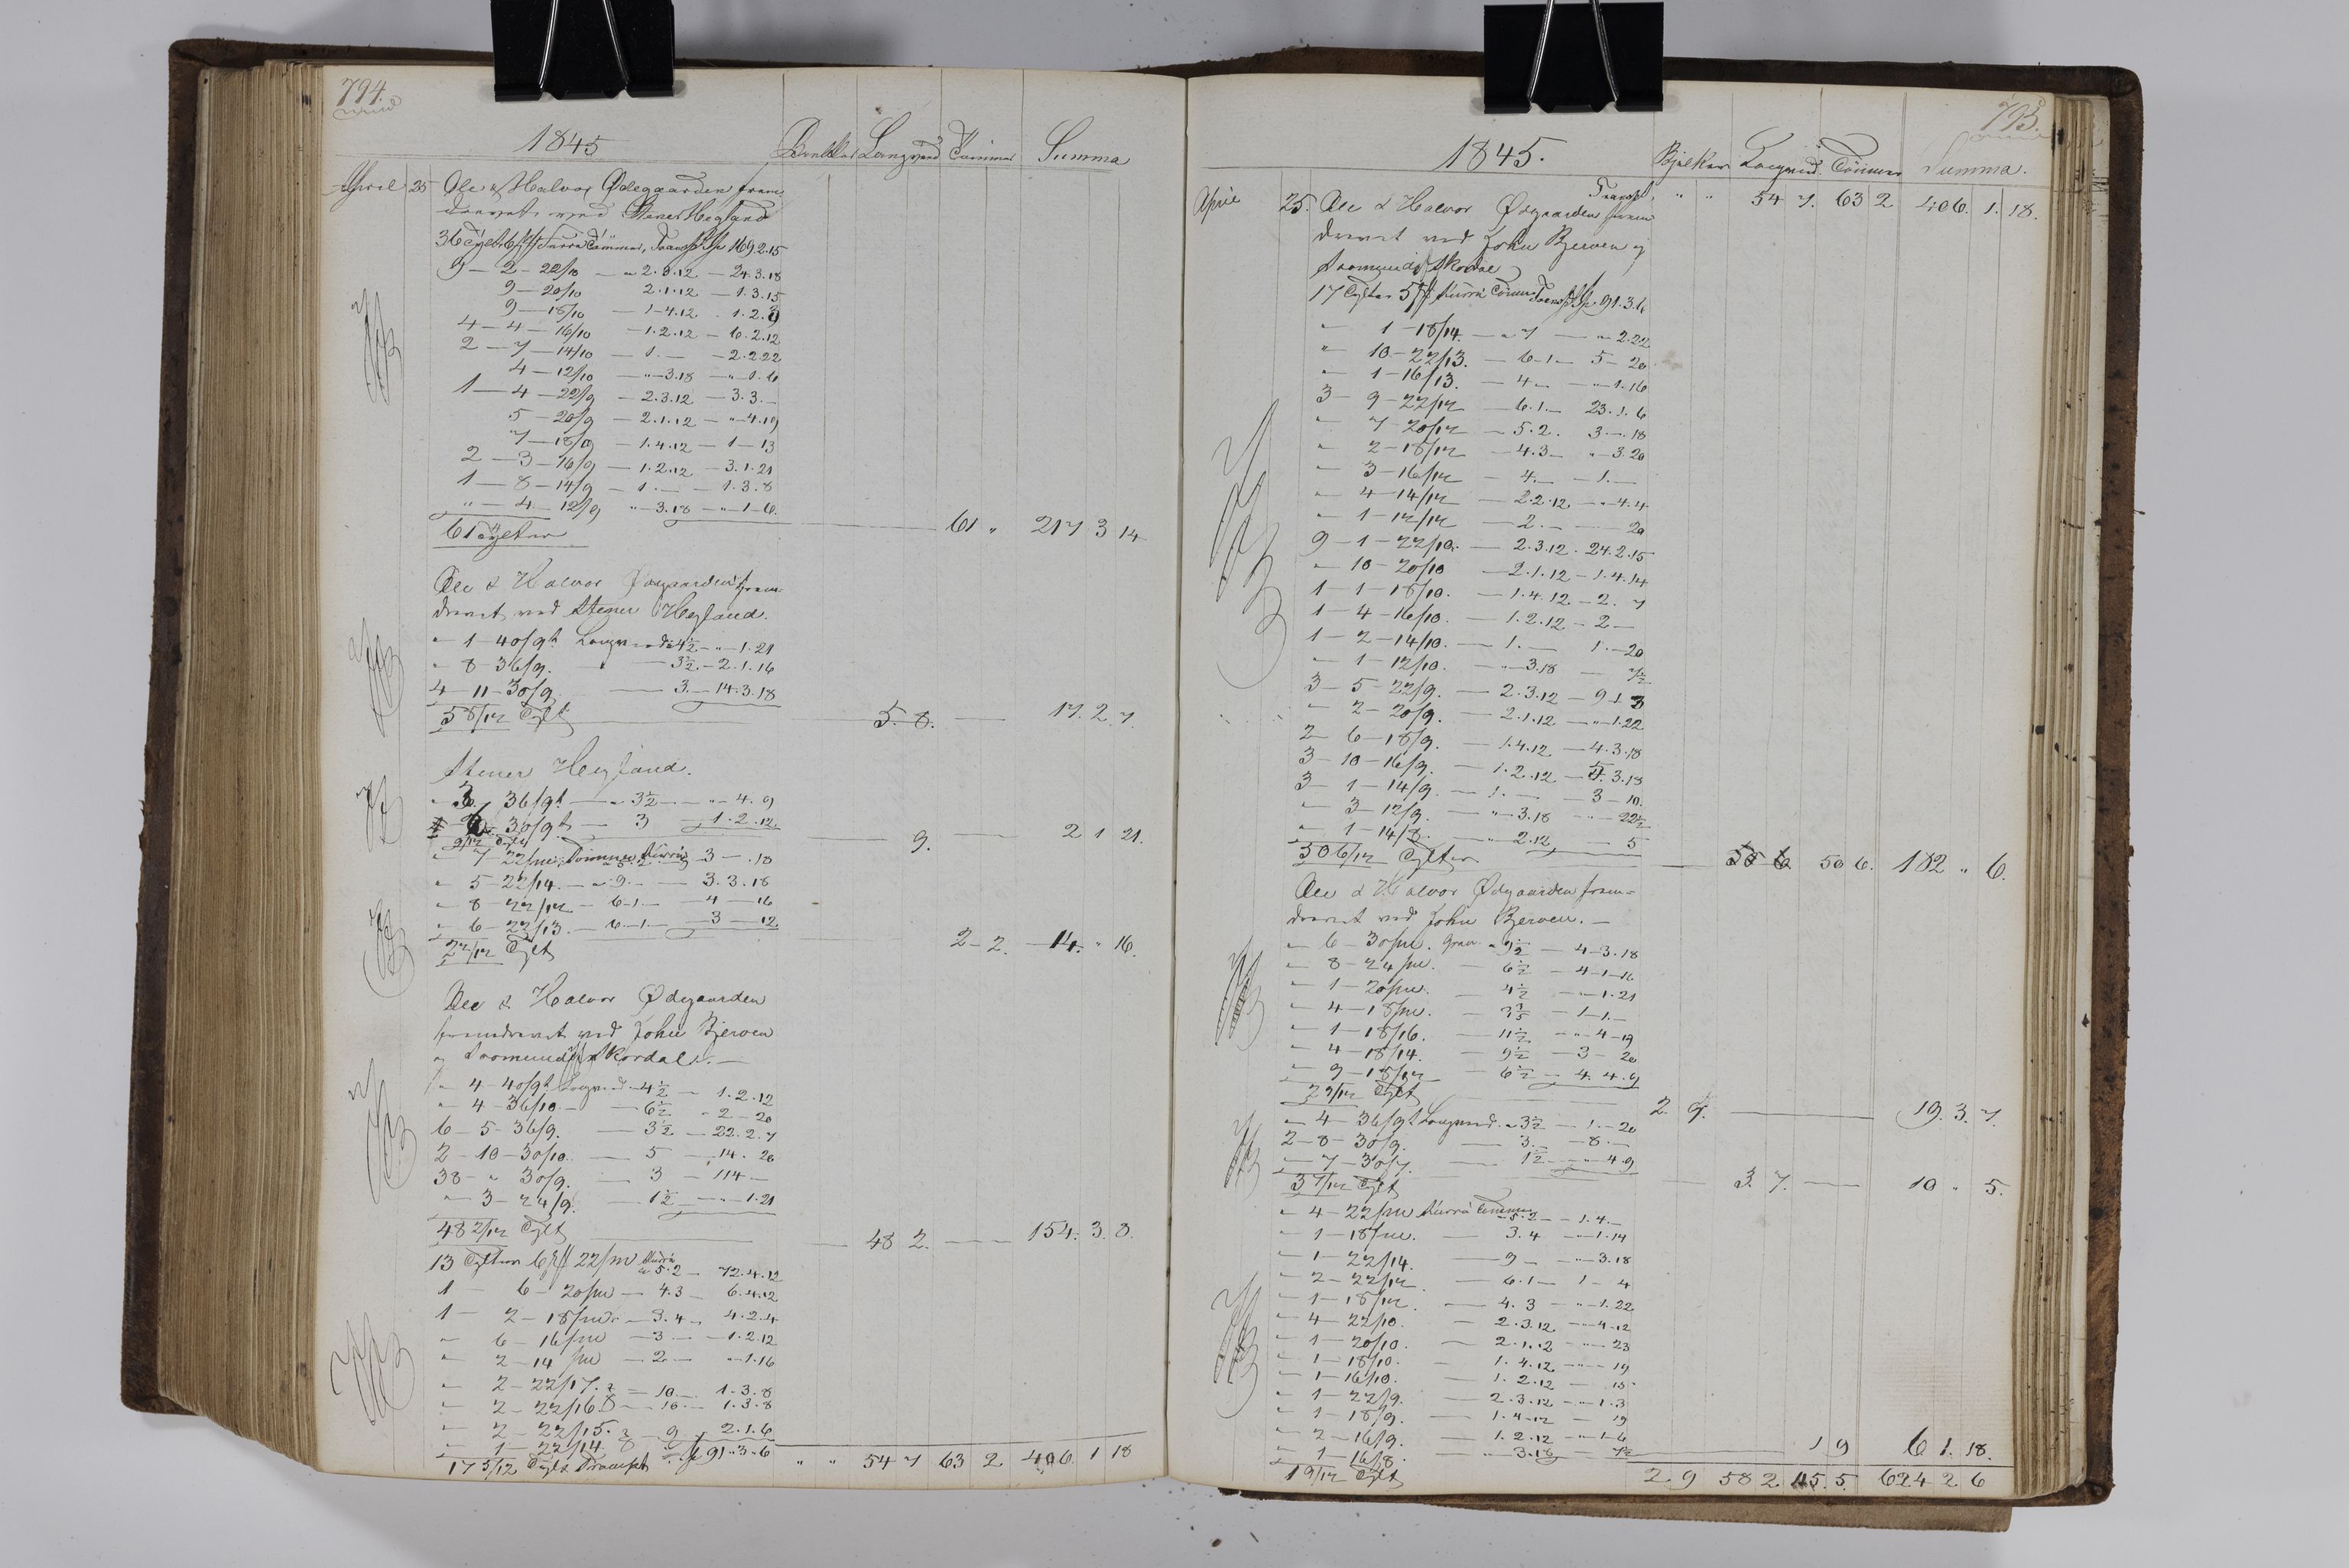 794.
1845
Langved Tømmer Summa
April 25 Ole & Halvor Ødegaarden frem-
drevet ved Stener Hegland
36 Tylt 6 st Furru Tømmer, Transp Sp 169.2.15
9 — 2 — 22/10 — " 2.3.12 — 24.3.18
9 — 20/10 2.1.12 — 1.3.15
9 — 18/10 — 1.4.12 . 1.2.9
4 — 4 — 16/10 — 1.2.12 — 6.2.12
2 — 7 — 14/10 — 1. — — 2.2.22
4 — 12/10 — " — 3.18 — " — 1.6
1 — 4 — 22/9 — 2.3.12 — 3.3. —
5 — 20/9 — 2.1.12 — " — 4.19
7 — 18/9 — 1.4.12 — 1 — 13
2 — 3 — 16/9 — 1.2.12 — 3.1.21
1 — 8 — 14/9 — 1. — — 1.3.8
" — 4 — 12/9 " — 3.18 — " — 1 — 6.
61 Tylter — 61 " 217 3 14
Ole & Halvor Ødgaarden frem-
drevet ved Stener Hegland.
" 1 — 40/9t Langved a 4½ — " — 1.21
" 8 — 36/9. — 3½ — 2.1.16
4 — 11 — 30/9 — 3. — 14.3.18
5 8/12 Tylt — 5. 8. — 17.2.7.
Stener Hegland.
" 3 36/9t — " 3½ — " — 4.9
30/9t — 3 — 1.2.12.
9/12 Tylt — 9. — 2 1 21.
" 7 — 22/m Tømmer Furru 3 — .18
" 5 — 22/14. — " 9. — 3.3.18
" 8 — 22/12 — 6.1. — — 4 — 16
" 6 — 22/13. — 6.1. — — 3 — 12.
2 2/12 Tylt — 2 — 2. — 14. " 16.
Ole & Halvor Ødgaarden
fremdrevet ved John Bjerven
og Aasmund Skordal. —
" 4 — 40/9t Langved — 4½ — 1.2.12
" 4 — 36/10 — — 6½ " 2 — 20
6 — 5 — 36/9. — 3½ — 22.2.7
2 — 10 — 30/10. — 5 — 14. 20
38 — " 30/9. — 3 — 114 —
" — 3 — 24/9. — 1½ — " — 1.21
48 2/12 Tylt — 48 2. — 154. 3. 8.
13 Tylter 6 st 22/m Furru a 5.2 — 72.4.12
1 — 6 — 20/m — 4.3 — 6.4.12
1 — 2 — 18/m — 3.4 — 4.2.4
" 6 — 16/m — 3 — — 1.2.12
" 2 — 14/m — 2 — " — 1.16
" 2 — 22/17. — 10. — 1.3.8
" 2 — 22/16 — 10. — 1.3.8
" 2 — 22/15. — 9 — 2.1.6
" 1 — 22/14.
17 5/12 Tylt Transpt Sp 91 " 3 " 6 " " 54 7 63 2 406 1 18
795.
1845.
Bjelker Langved. Tømmer Summa.
April 25. Transpt. " " 54 7. 63 2 406. 1. 18.
Ole & Halvor Ødgaarden frem-
drevet ved John Bjerven og
Aasmund Skordal
17 Tylter 5 st Furru Tømmer Transpt Sp 91.3.6
" 1 — 18/14. — " 7 — " 2.22
" 10 — 22/13. — 6.1 — 5 — 20
" 1 — 16/13. — 4 — " 1.16
3 — 9 — 22/12 — 6.1. — 23.1.6
" 7 — 20/12 — 5.2. 3 — .18
" 2 — 18/12 — 4.3 — " 3.20
" 3 — 16/12 — 4. — — 1. —
" 4 — 14/12 — 2.2.12 — " 4.4
" 1 — 12/12 — 2. — — 20
9 — 1 — 22/10. — 2.3.12 . 24.2.15
" 10 — 20/10 — 2.1.12 — 1.4.14
1 — 1 — 18/10. — 1.4.12 — 2. 7
1 — 4 — 16/10. — 1.2.12 — 2 —
1 — 2 — 14/10. — 1. — 1. — 20
" 1 — 12/10. — " 3.18 — 7½
3 — 5 — 22/9. — 2.3.12 — 9 1 3
" 2 — 20/9. — 2.1.12 — " 1.22
2 — 6 — 18/9. — 1.4.12 — 4.3.18
3 — 10 — 16/9. — 1.2.12 — 5.3.18
3 — 1 — 14/9. — 1. — — 3 — 10.
" 3 — 12/9. — " 3.18 — 22½
" 1 — 14/8. — 2.12 — 5
50 6/12 Tylter — 50 6. 182 " 6.
Ole & Halvor Ødgaarden frem-
drevet ved John Bjerven. —
" 6 — 30/m. Gran " 9½ — 4 — 3.18
" 8 — 24/m. — 6½ — 4 — 1 — 16
" 1 — 20/m. — 4½ — " 1.21
" 4 — 18/m. — 1 — 1. —
" 1 — 18/16. — 11½ — " 4 — 19
" 4 — 18/14. — 9½ — 3 — 20
" 9 — 18/12 — 6½ — 4. 4.9
2 9/12 Tylt — 2. 9. — 19. 3. 7.
" 4 — 36/9t Langved. " 3½ — 1. — 20
2 — 8 — 30/9. — 3. — — 8. —
" 7 — 30/7. — 1½ — " 4.9
3 7/12 Tylt — 3. 7. — 10 " 5.
" 4 — 22/m Furru Tømmer — 5.2 — 1.4. —
" 1 — 18/m. — 3.4 — " 1.14
" 1 — 22/14. — 9 — — " 3.18
" 2 — 22/12. — 6.1 — 1 — 4
" 1 — 18/12. — 4.3 — " 1.22
" 4 — 22/10. — 2.3.12 — " 4.12
" 1 — 20/10. — 2.1.12 — " 23
" 1 — 18/10. — 1.4.12 — " 19
" 1 — 16/10. — 1.2.12 — 15
" 1 — 22/9. — 2.3.12 — " 1.3
" 1 — 18/9. — 1.4.12 — 19
" 2 — 16/9. — 1.2.12 — " 1 — 6
" 1 — 16/8. — " 3.18 — 7½
1 9/12 Tylt — 1 9 6 1. 18.
2 9 58 2 115. 5. 624 2 6